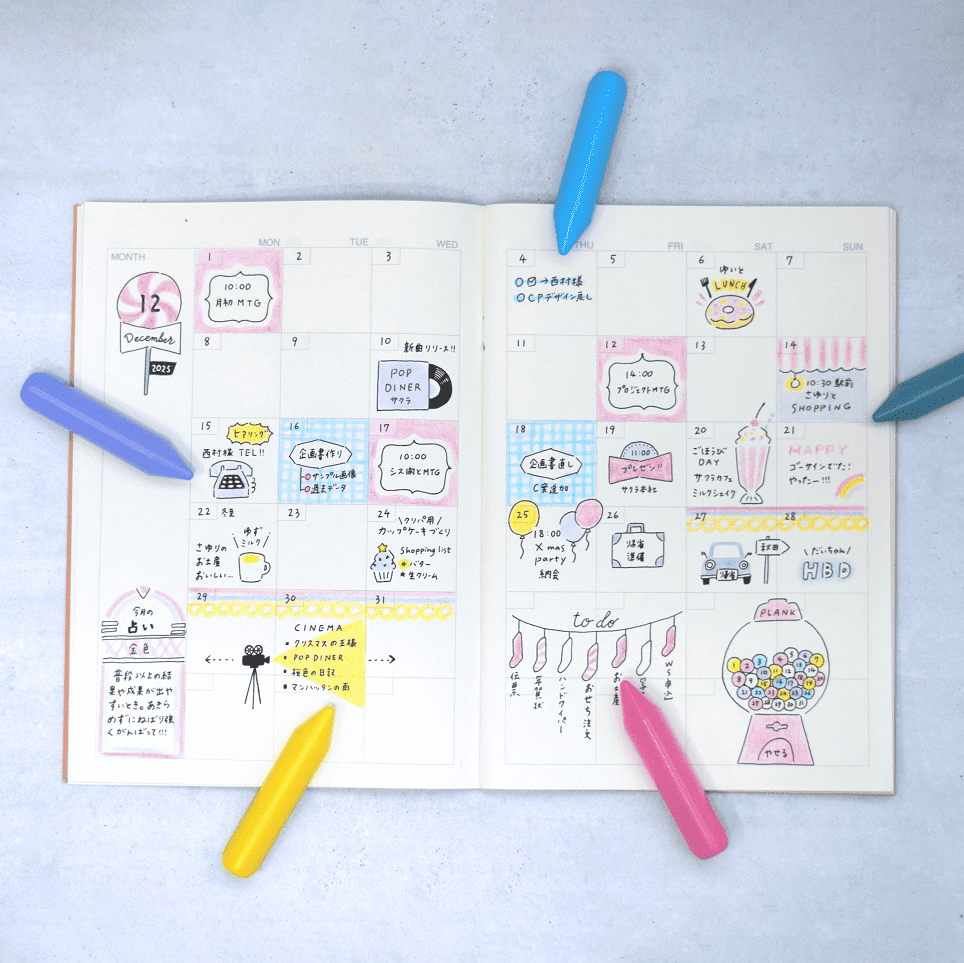 MONTH
MON
TUE
WED
12
December
2025
1
10:00
月初MTG
2
3
8
9
10
新曲リリース!!
POP
DINER
サクラ
15
ヒアリング
西村様 TEL!!
16
企画書作り
サンプル画像
過去データ
17
10:00
シス開とMTG
22 冬至
ゆず
ミルク
さゆりの
お土産
おいしい…
23
24
クリパ用
カップケーキづくり
Shopping list
*バター
*生クリーム
29
30
31
今月の
占い
金色
普段以上の結
果や成果が出や
すいとき。あきら
めずにねばり強
くがんばって!!!
CINEMA
クリスマスの王様
POP DINER
桜色の日記
マンハッタンの雨
THU
FRI
SAT
SUN
4
→西村様
CPデザイン戻し
5
6
ゆいと
LUNCH
7
11
12
14:00
プロジェクトMTG
13
14
10:30 駅前
さゆりと
SHOPPING
18
企画書直し
C案追加
19
11:00
プレゼン!!
サクラ本社
20
ごほうび
DAY
サクラカフェ
ミルクシェイク
21
HAPPY
ゴーサインでた!
やったー!!!
25
18:00
Xmas
party
納会
26
帰省
準備
27
帰省
秋田
28
だいちゃん
HBD
to do
伝票
年賀状
ハンドワイパー
おせち注文
お土産
WS申込
PLANK
1
2
3
4
5
6
7
8
9
10
11
12
13
14
15
16
17
18
19
20
21
22
23
24
25
26
27
28
29
30
31
やせる